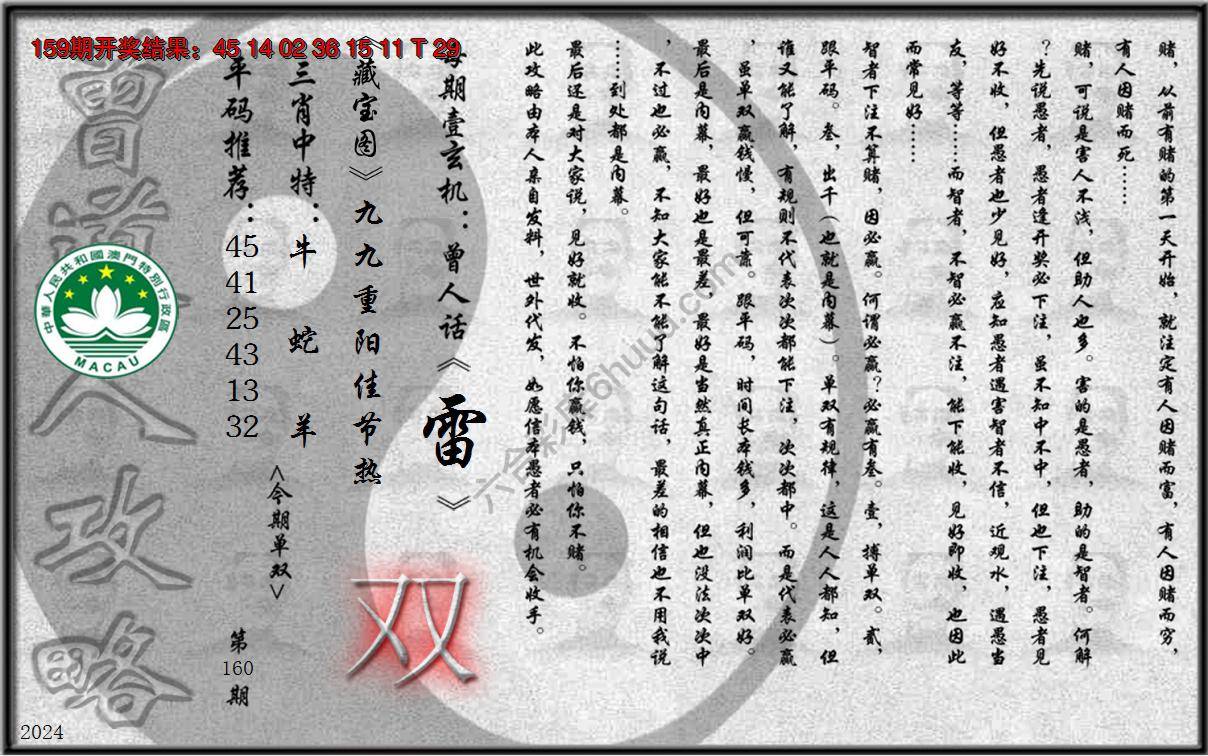 159期开奖结果：45 14 02 36 15 11 T 29
赌，从前有赌的第一天开始，就注定有人因赌而富，有人因赌而穷，
有人因赌而死……
赌，可说是害人不浅，但助人也多。害的是愚者，助的是智者。何解
？先说愚者，愚者逢开奖必下注，虽不知中不中，但也下注，愚者见
好不收，但愚者也少见好，应知愚者遇害智者不信，近观水，遇愚当
友，等等……而智者，不智必赢不注，能下能收，见好即收，也因此
而常见好……
智者下注不算赌，因必赢。何谓必赢？必赢有叁。壹，搏单双。贰，
跟平码。叁，出千（也就是内幕）。单双有规律，这是人人都知，但
谁又能了解，有规则不代表次次都能下注，次次都中。而是代表必赢
，虽单双赢钱慢，但可靠。跟平码，时间长本钱多，利润比单双好。
最后是内幕，最好也是最差，最好是当然真正内幕，但也没法次次中
，不过也必赢，不知大家能不能了解这句话，最差的相信也不用我说
……到处都是内幕。
最后还是对大家说，见好就收。不怕你赢钱，只怕你不赌。
此攻略由本人亲自发料，世外代发，如愿信本愚者必有机会收手。
每期壹玄机：曾人话《雷》
《藏宝图》九九重阳佳节热
双
三肖中特：牛 蛇 羊
<今期单双>
平码推荐：
45
41
25
43
13
32
第
160
期
曾道人攻略
中華人民共和國澳門特別行政區
MACAU
2024